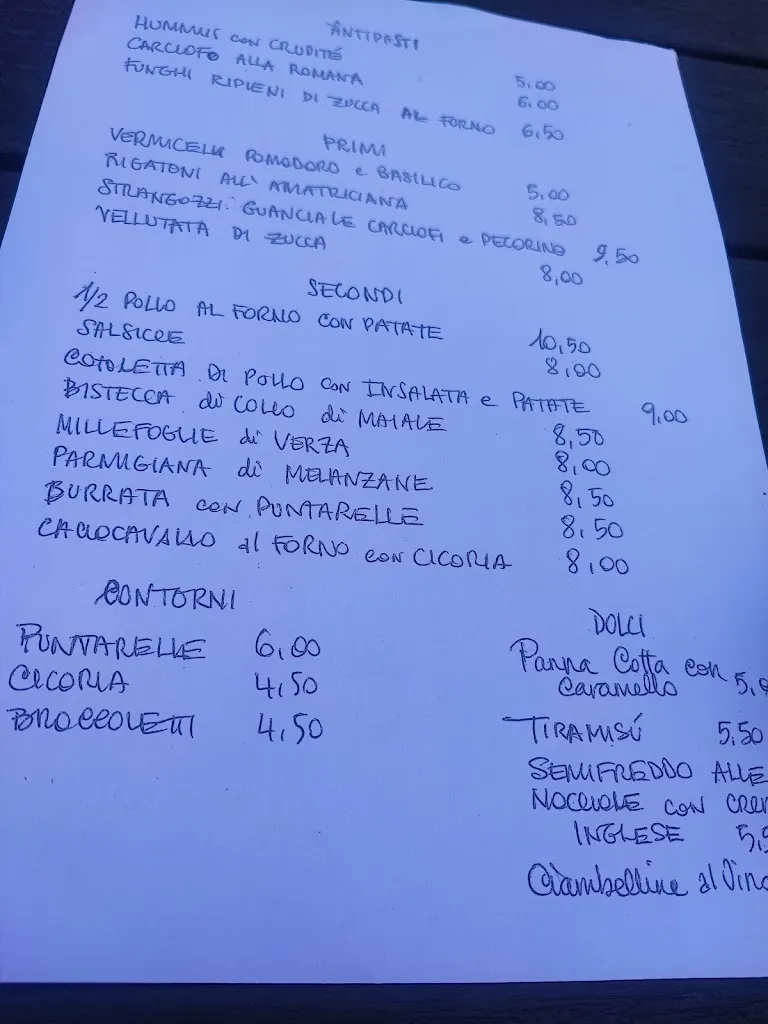 ANTIPASTI
HUMMUS con CRUDITÉ 5,00
CARCIOFO ALLA ROMANA 6,00
FUNGHI RIPIENI DI ZUCCA AL FORNO 6,50
PRIMI
VERMICELLI POMODORO e BASILICO 5,00
RIGATONI ALL'AMATRICIANA 8,50
STRANGOZZI: GUANCIALE CARCIOFI e PECORINO 9,50
VELLUTATA DI ZUCCA 8,00
SECONDI
1/2 POLLO AL FORNO CON PATATE 10,50
SALSICCE 8,00
COTOLETTA DI POLLO con INSALATA e PATATE 9,00
BISTECCA di COLLO di MAIALE 8,50
MILLEFOGLIE di VERZA 8,00
PARMIGIANA di MELANZANE 8,50
BURRATA con PUNTARELLE 8,50
CACIOCAVALLO al FORNO con CICORIA 8,00
CONTORNI
PUNTARELLE 6,00
CICORIA 4,50
BROCCOLETTI 4,50
DOLCI
Panna Cotta con
Caramello
TIRAMISÚ 5,50
SEMIFREDDO ALLE
NOCCIOLE CON
INGLESE
Ciambelline al